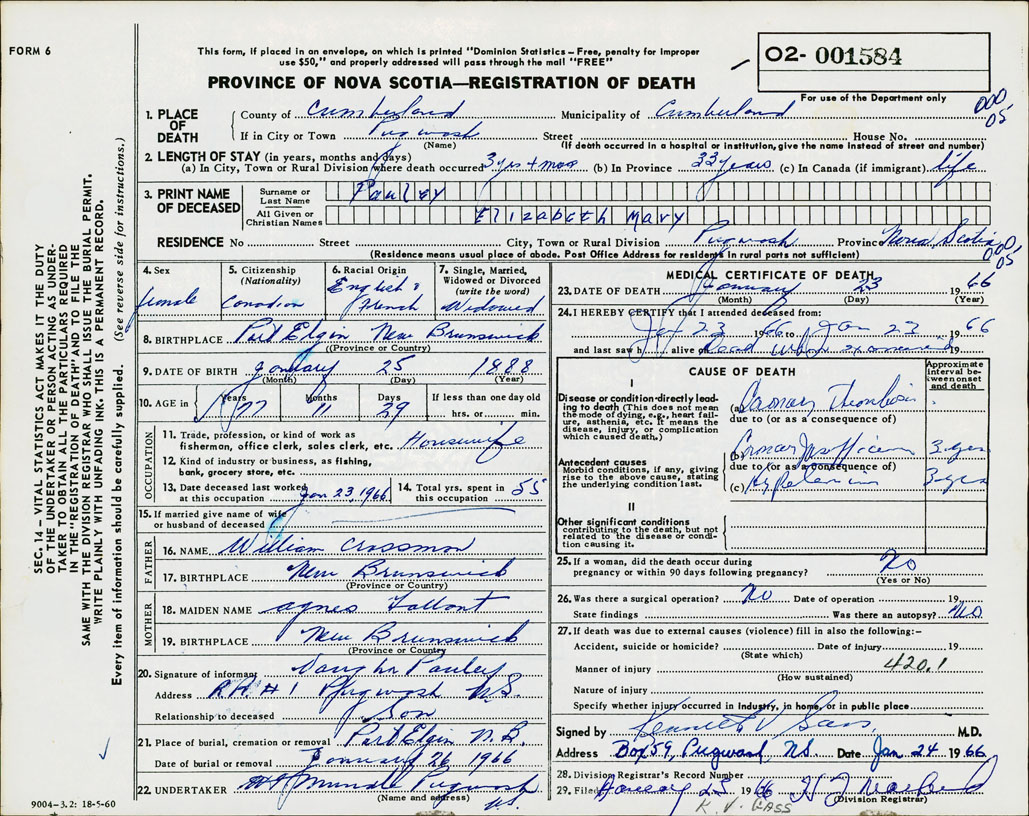 FORM 6
This form, if placed in an envelope, on which is printed "Dominion Statistics – Free, penalty for improper
use $50," and properly addressed will pass through the mail "FREE"
PROVINCE OF NOVA SCOTIA—REGISTRATION OF DEATH
O2- 001584
For use of the Department only
000
05
1. PLACE OF DEATH
County of Cumberland Municipality of Cumberland
If in City or Town Pugwash Street House No.
(Name) (If death occurred in a hospital or institution, give the name instead of street and number)
2. LENGTH OF STAY (in years, months and days)
(a) In City, Town or Rural Division where death occurred 3 yrs + mos (b) In Province 33 years (c) In Canada (if immigrant) life
3. PRINT NAME OF DECEASED
Surname or Last Name Pauley
All Given or Christian Names Elizabeth Mary
RESIDENCE No Street City, Town or Rural Division Pugwash Province Nova Scotia
000
05
(Residence means usual place of abode. Post Office Address for residents in rural parts not sufficient)
4. Sex
female
5. Citizenship
(Nationality)
Canadian
6. Racial Origin
English &
French
7. Single, Married,
Widowed or Divorced
(write the word)
Widowed
8. BIRTHPLACE Port Elgin New Brunswick
(Province or Country)
9. DATE OF BIRTH January 25 1888
(Month) (Day) (Year)
10. AGE in Years Months Days If less than one day old
77 11 29 hrs. or min.
OCCUPATION
11. Trade, profession, or kind of work as
fisherman, office clerk, salesclerk, etc. Housewife
12. Kind of industry or business, as fishing,
bank, grocery store, etc.
13. Date deceased last worked
at this occupation Jan 23, 1966
14. Total yrs. spent in
this occupation 55
15. If married give name of wife
or husband of deceased
FATHER
16. NAME William Crossman
17. BIRTHPLACE New Brunswick
(Province or Country)
MOTHER
18. MAIDEN NAME Agnes
19. BIRTHPLACE New Brunswick
(Province or Country)
20. Signature of informant Pauley
Address R.R. # 1 Pugwash N.S.
Relationship to deceased Son
21. Place of burial, cremation or removal Port Elgin N.B.
Date of burial or removal January 26 1966
22. UNDERTAKER Pugwash
(Name and address) N.S.
MEDICAL CERTIFICATE OF DEATH
23. DATE OF DEATH January 23 19 66
(Month) (Day) (Year)
24. I HEREBY CERTIFY that I attended deceased from:
Jan 23 1966 to Jan 23 1966
and last saw h alive on Dead when examined 19
CAUSE OF DEATH
Approximate interval between onset and death
I
Disease or condition directly leading to death (This does not mean the mode of dying, e.g., heart failure, asthenia, etc. It means the disease, injury, or complication which caused death.)
(a) Coronary Thrombosis
due to (or as a consequence of)
Antecedent causes
Morbid conditions, if any, giving rise to the above cause, stating the underlying condition last.
(b) Coronary Insufficiency 3 yrs
due to (or as a consequence of)
(c) Hypertension 3 yrs
II
Other significant conditions
contributing to the death, but not related to the disease or condition causing it.
25. If a woman, did the death occur during
pregnancy or within 90 days following pregnancy? No
(Yes or No)
26. Was there a surgical operation? No Date of operation 19
State findings Was there an autopsy? No
27. If death was due to external causes (violence) fill in also the following:–
Accident, suicide or homicide? Date of injury 19
(State which)
Manner of injury 420.1
(How sustained)
Nature of injury
Specify whether injury occurred in Industry, in home, or in public place
Signed by Kenneth V Gass M.D.
Address Box 59, Pugwash NS Date Jan 24 1966
28. Division Registrar's Record Number
29. Filed January 25 1966
(Division Registrar)
K. V. GASS
SEC. 14 – VITAL STATISTICS ACT MAKES IT THE DUTY
OF THE UNDERTAKER OR PERSON ACTING AS UNDER-
TAKER TO OBTAIN ALL THE PARTICULARS REQUIRED
IN THE "REGISTRATION OF DEATH" AND TO FILE THE
SAME WITH THE DIVISION REGISTRAR WHO SHALL ISSUE THE BURIAL PERMIT.
WRITE PLAINLY WITH UNFADING INK. THIS IS A PERMANENT RECORD.
Every item of information should be carefully supplied. (See reverse side for instructions.)
9004-3.2: 18-5-60